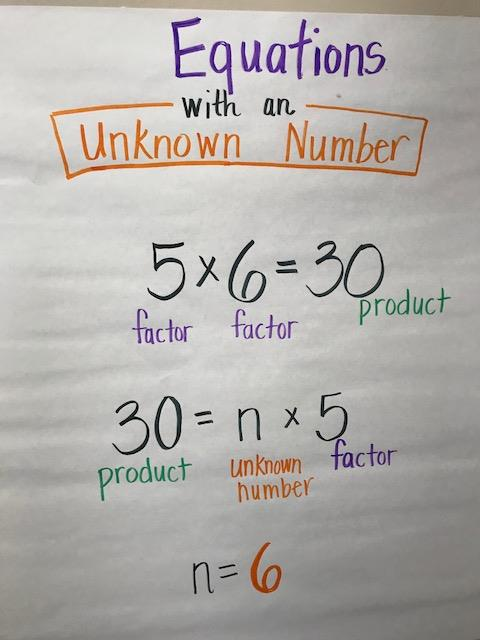 Equations
with an
Unknown Number
5 x 6 = 30
factor factor product
30 = n x 5
product unknown number factor
n = 6